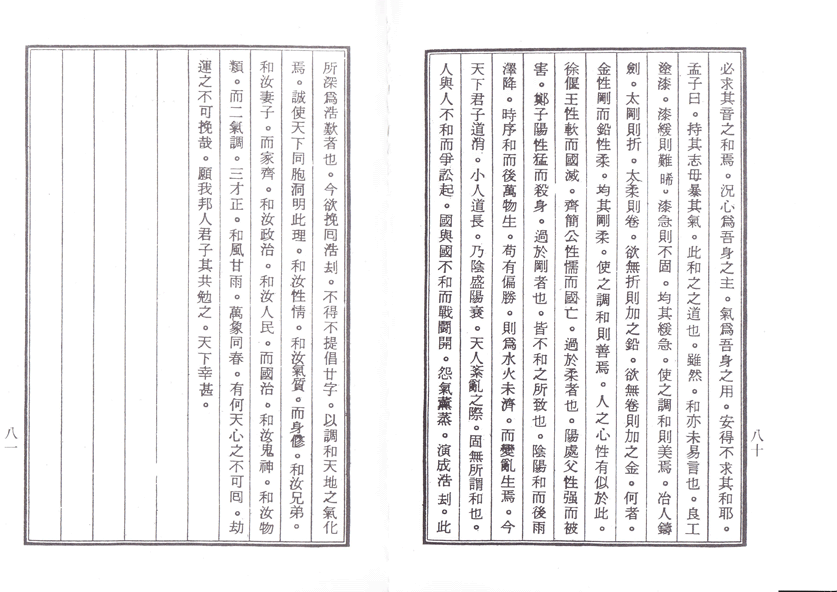 必求其音之和焉。況心為吾身之主。氣為吾身之用。安得不求其和耶。
孟子曰。持其志毋暴其氣。此和之之道也。雖然。和亦未易言也。良工
塗漆。漆緩則難晞。漆急則不固。均其緩急。使之調和則美焉。冶人鑄
劍。太剛則折。太柔則卷。欲無折則加之鉛。欲無卷則加之金。何者。
金性剛而鉛性柔。均其剛柔。使之調和則善焉。人之心性有似於此。
徐偃王性軟而國滅。齊簡公性懦而國亡。過於柔者也。陽處父性强而被
害。鄭子陽性猛而殺身。過於剛者也。皆不和之所致也。陰陽和而後雨
澤降。時序和而後萬物生。苟有偏勝。則為水火未濟。而變亂生焉。今
天下君子道消。小人道長。乃陰盛陽衰。天人紊亂之際。固無所謂和也。
人與人不和而爭訟起。國與國不和而戰鬪開。怨氣薰蒸。演成浩刦。此
八十
所深為浩歎者也。今欲挽囘浩刦。不得不提倡廿字。以調和天地之氣化
焉。誠使天下同胞洞明此理。和汝性情。和汝氣質。而身修。和汝兄弟。
和汝妻子。而家齊。和汝政治。和汝人民。而國治。和汝鬼神。和汝物
類。而二氣調。三才正。和風甘雨。萬象同春。有何天心之不可囘。劫
運之不可挽哉。願我邦人君子其共勉之。天下幸甚。
八一